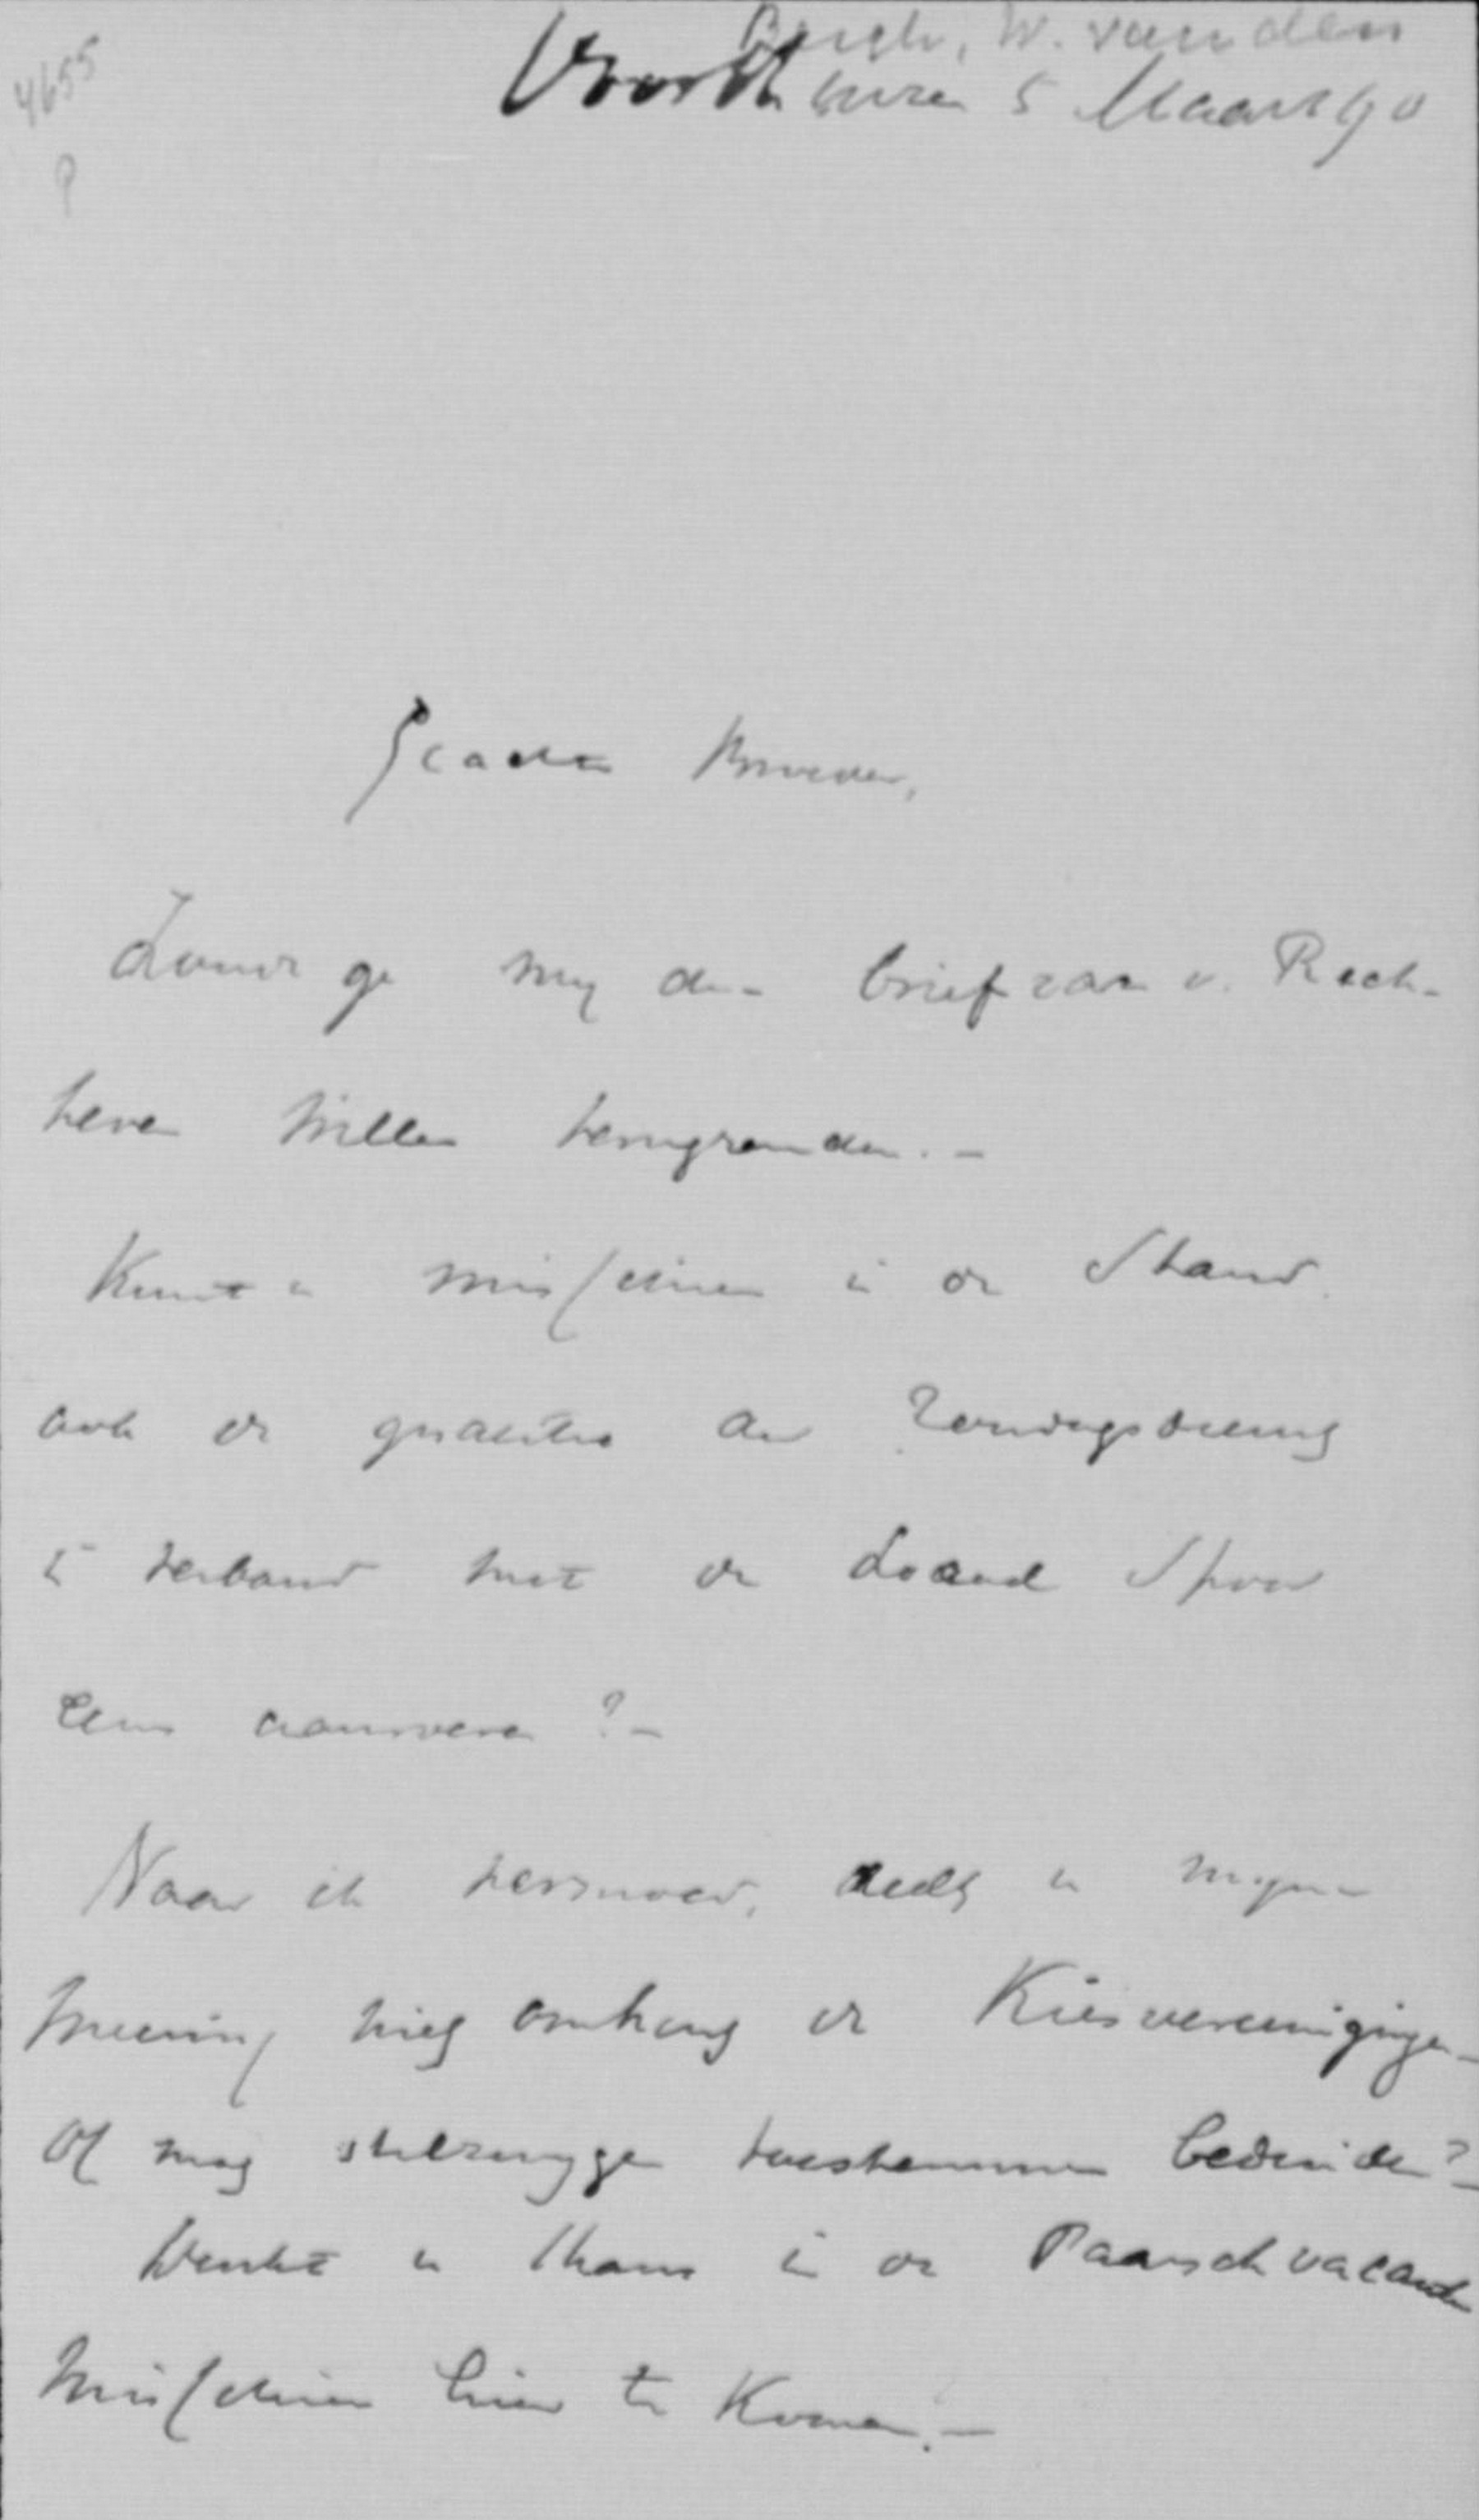 4655
Bergh, W. van den
Voorthuizen 5 Maart 90
Geachte Broeder,
Zoudt ge mij den brief van v. Rech-
teren willen terugzenden. -
Kunt u misschien in de Stand.
ook de quaestie der Zondagsdienst
in verband met de Locaal Spoor
eens aanroeren? -
Naar ik vermoed, deelt u mijne
meening niet omtrent de Kiesvereenigingen -
Of mag stilzwijgen toestemmen beduiden? -
Denkt u thans in de Paaschvacantie
misschien hier te komen. -